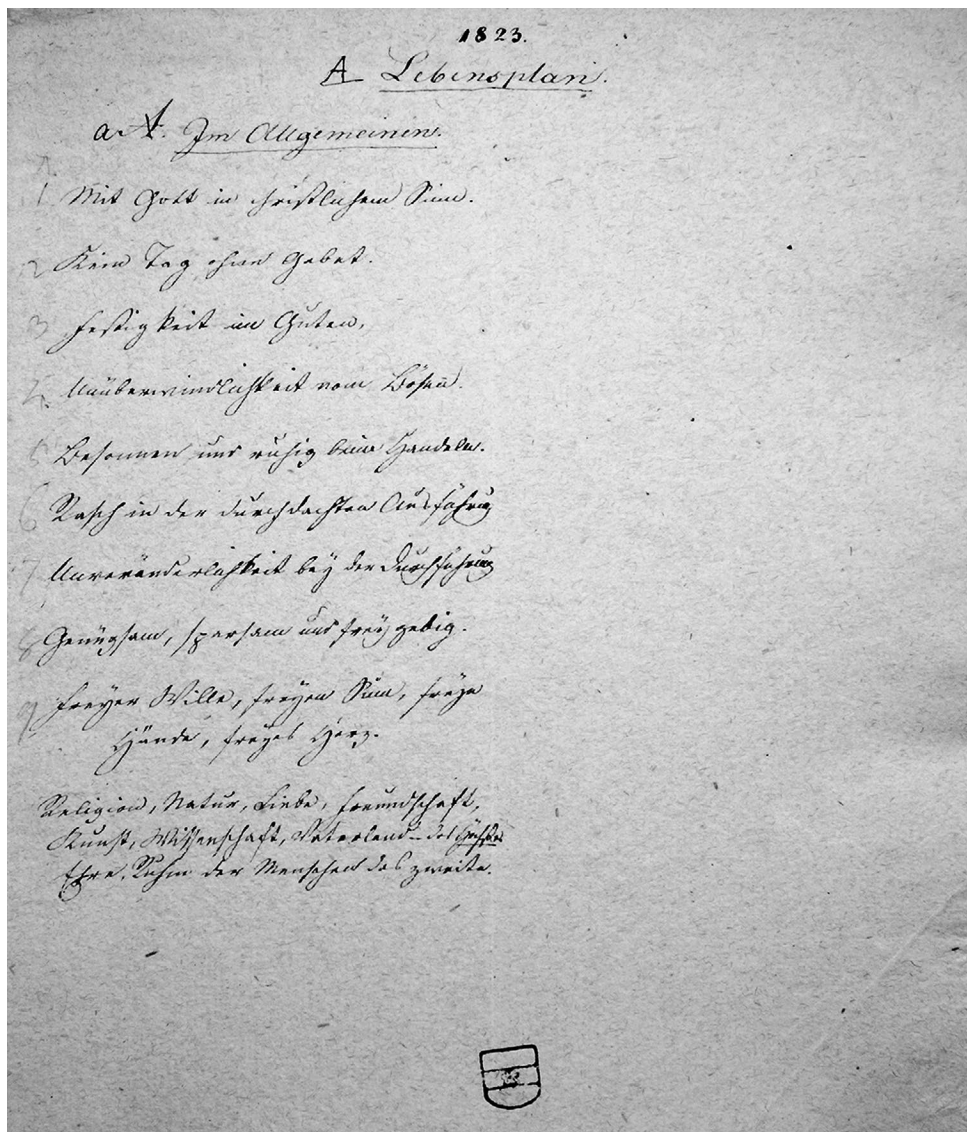 1823.
A Lebensplan.
a A. Im Allgemeinen.
1 Mit Gott in christlichem Sinn.
2 Kein Tag ohne Gebet.
3 Festigkeit im Guten,
4. Unüberwindlichkeit vom Bösen.
5 Besonnen und ruhig beim Handeln.
6 Rasch in der durchdachten Ausführung
7 Unveränderlichkeit bey der Durchführung
8 Genügsam, sparsam und freygebig.
9 Freyer Wille, freyen Sinn, freye
Hände, freyes Herz.
Religion, Natur, Liebe, Freundschaft,
Kunst, Wissenschaft, Vaterland – das Höchste
Ehre, Ruhm der Menschen das zweite.